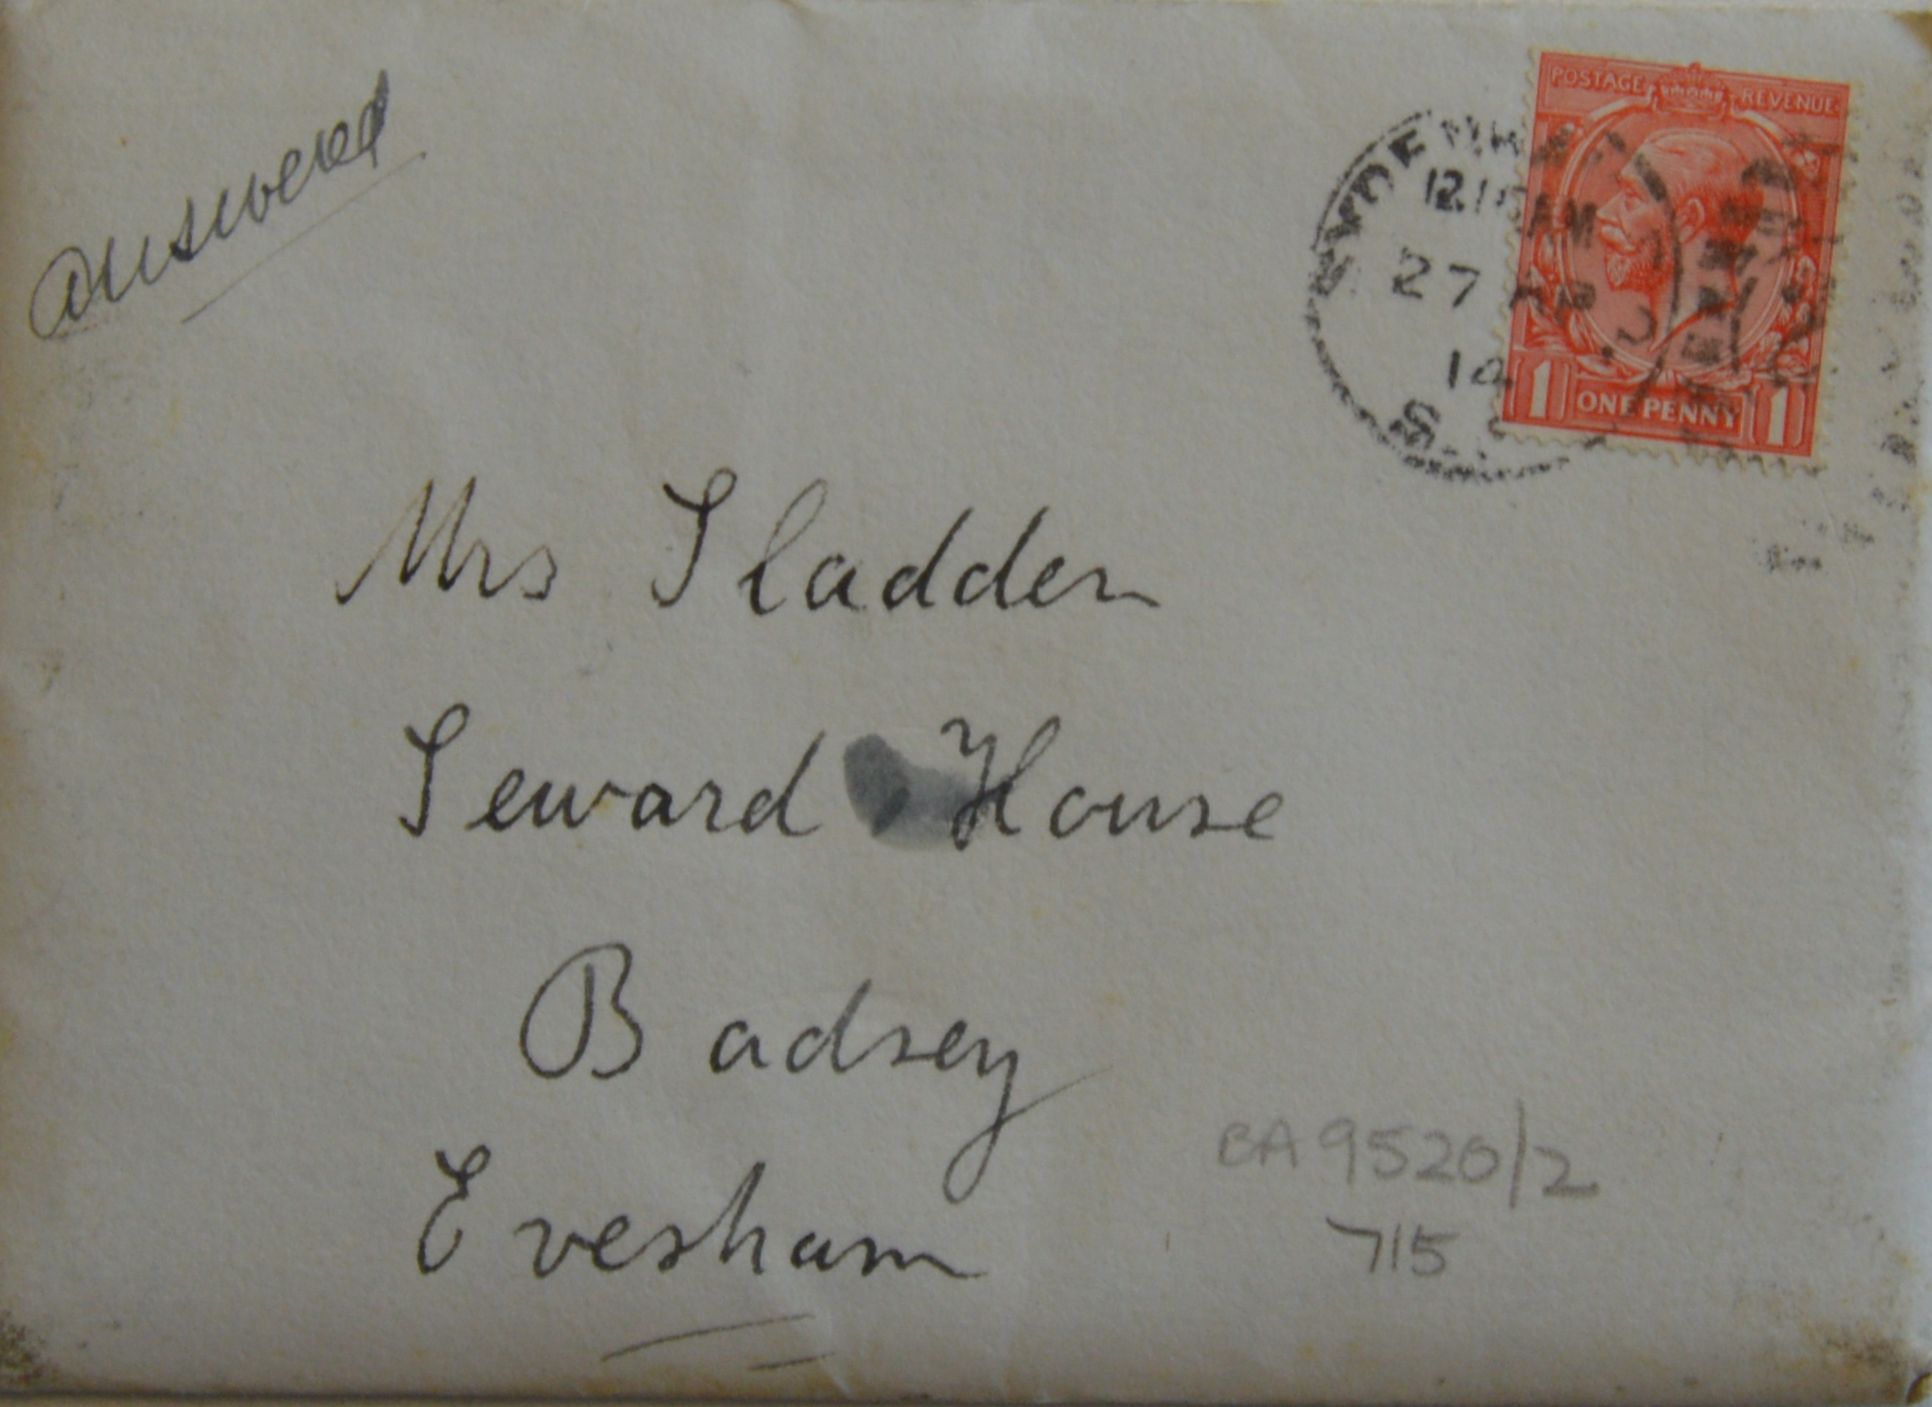 answered
POSTAGE REVENUE
12.15 AM
27 AP
14
S.E.
1 ONE PENNY 1
Mrs Sladden
Seward House
Badsey
Evesham
BA 9520/2
715